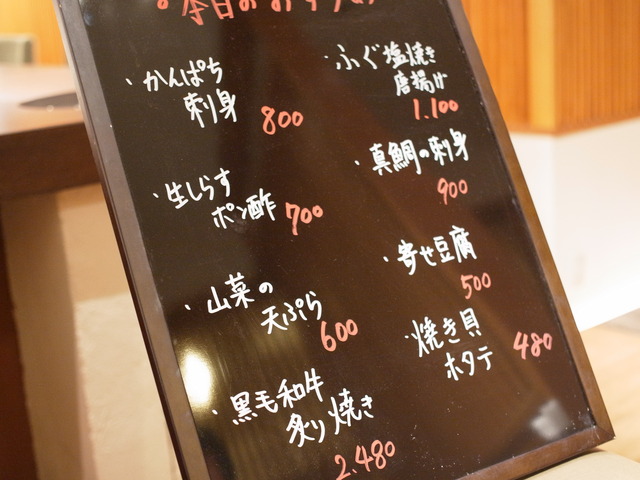 本日のおすすめ
・かんぱち
刺身
800
・生しらす
ポン酢 700
・山菜の
天ぷら
600
・黒毛和牛
炙り焼き
2.480
・ふぐ塩焼き
唐揚げ
1.100
・真鯛の刺身
900
・寄せ豆腐
500
・焼き貝
ホタテ 480